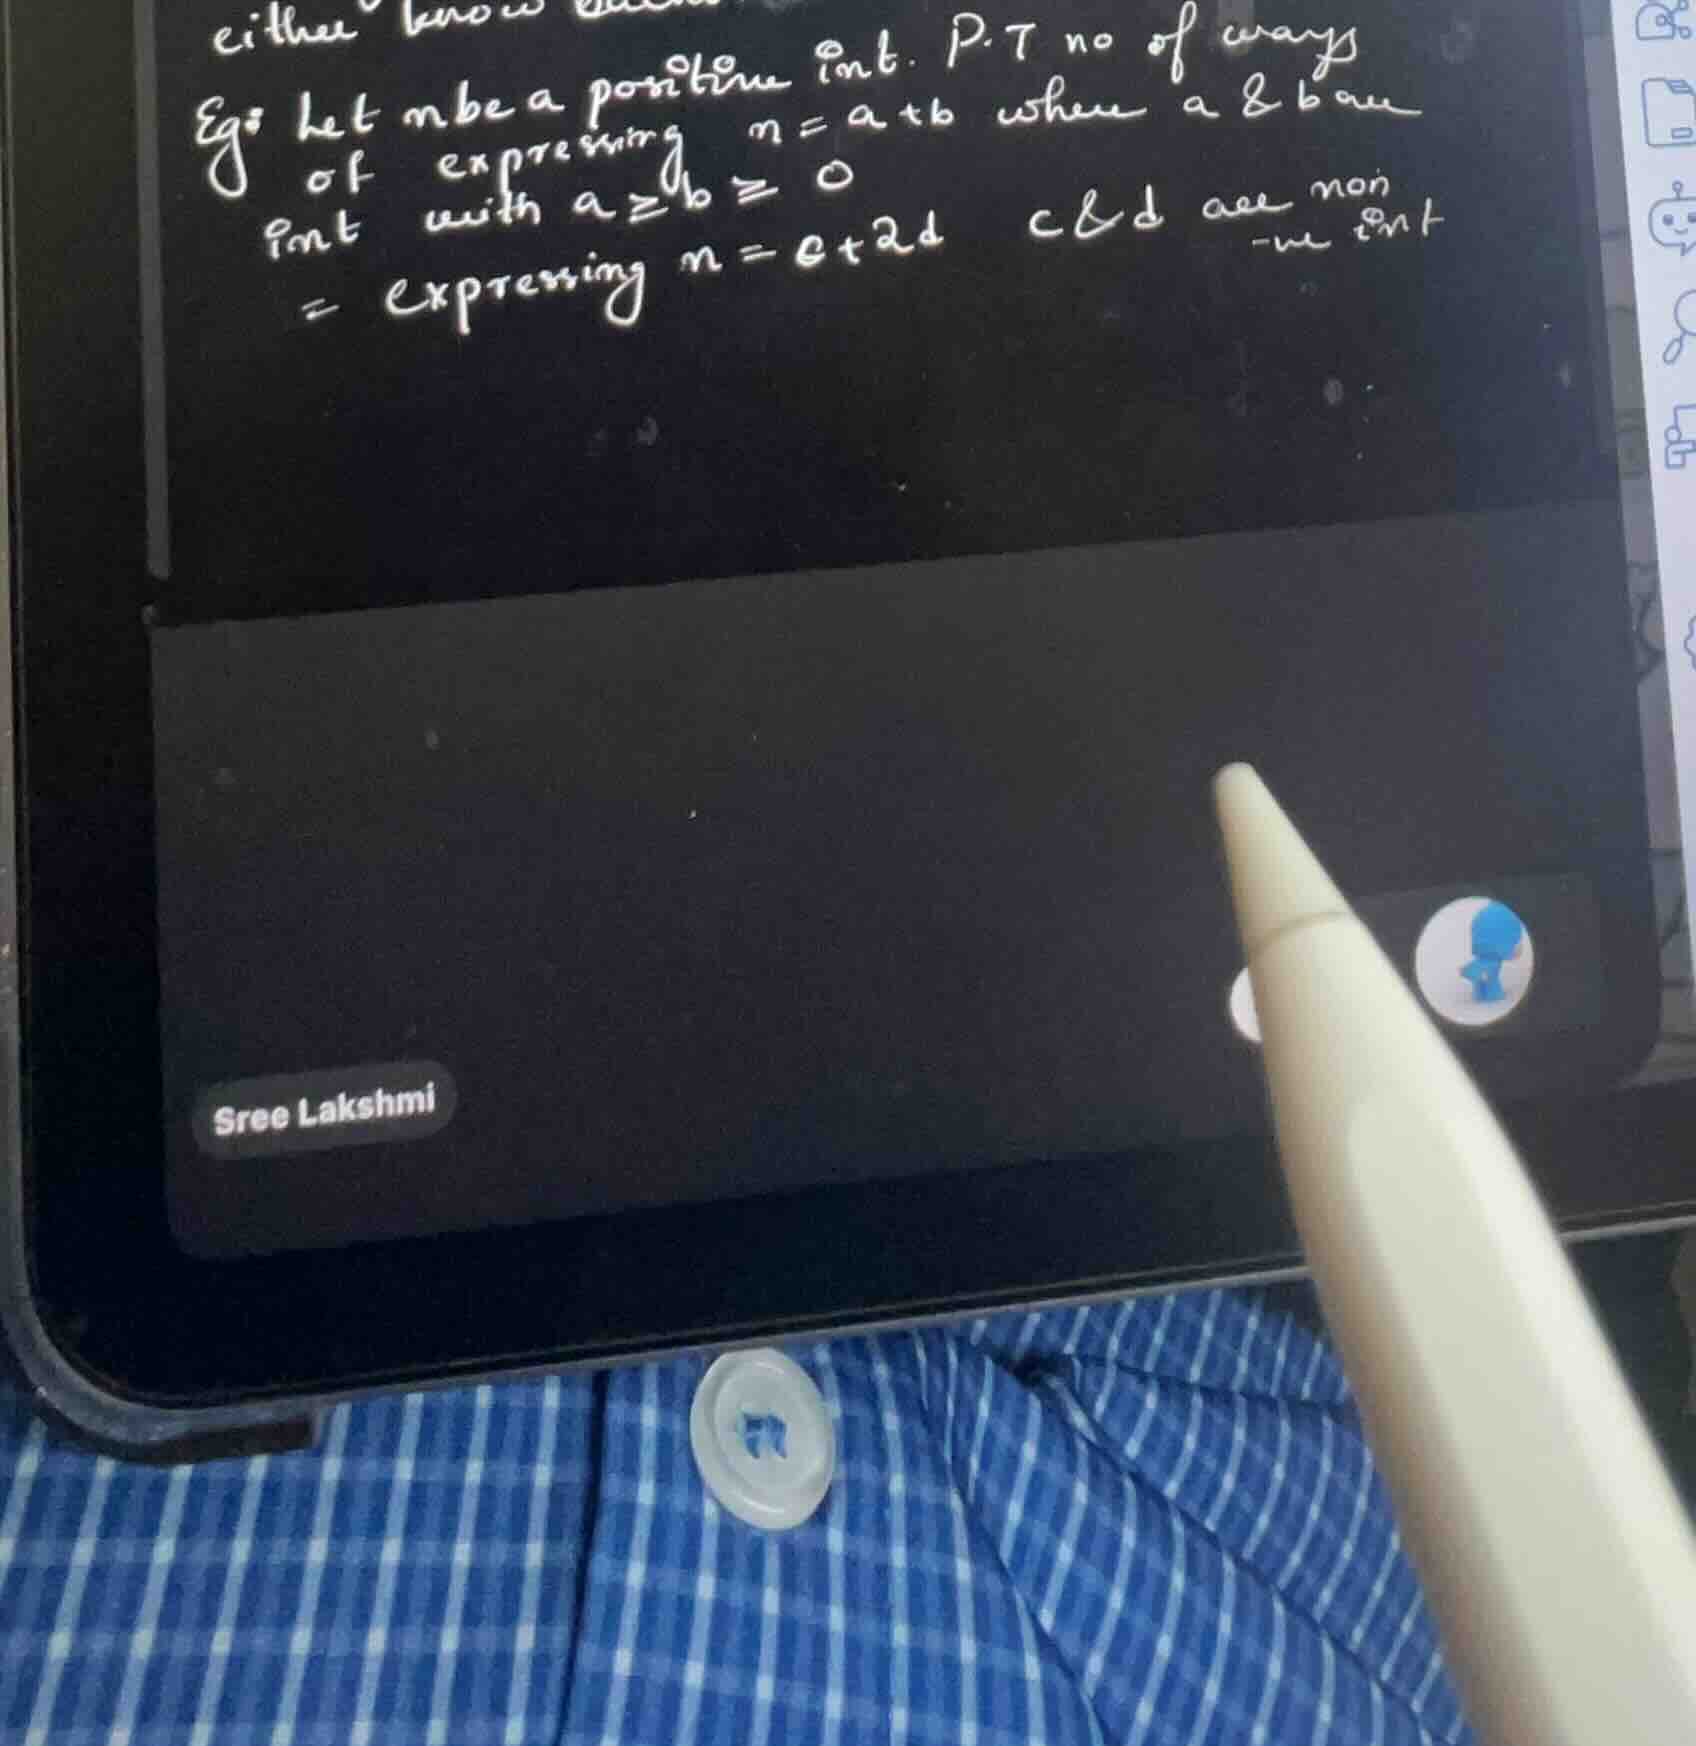 either know
Eg: Let n be a positive int. P.T no of ways
of expressing n = a + b where a & b are
int with a ≥ b ≥ 0
= expressing n = c + 2d c & d are non
-ve int
Sree Lakshmi